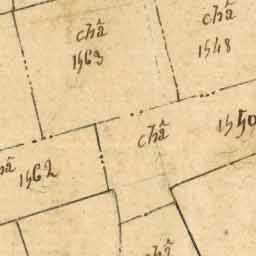 châ
1563
châ
1548
châ
1550
1562
châ